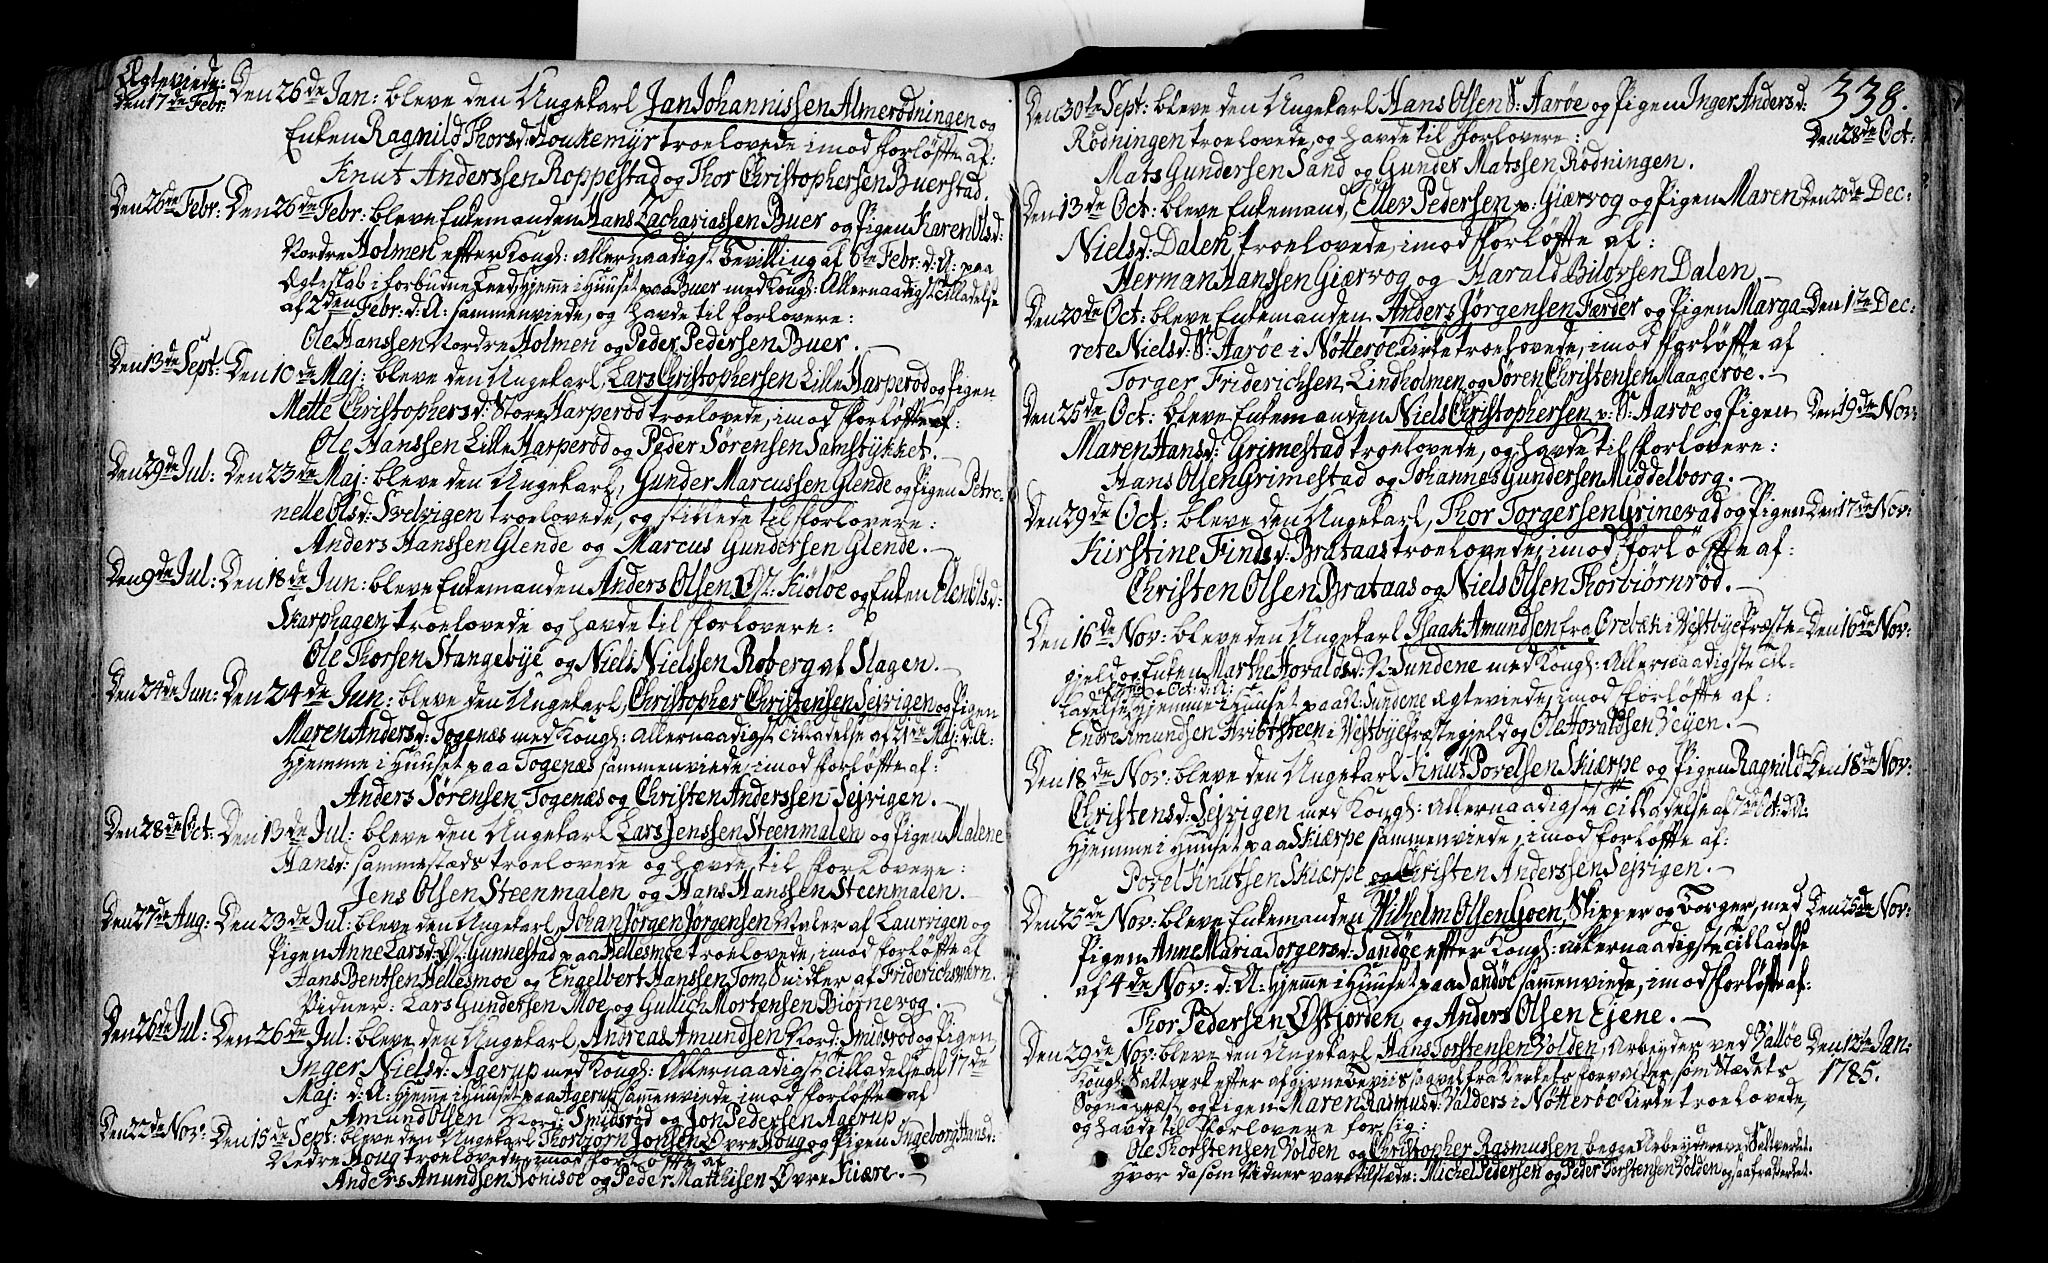 Ægteviede:
Den 17de Febr. Den 26de Jan: bleve den Ungekarl Jan Johannissen Almerødningen og
Enken Ragnild Thorsd: Houkemyr troelovede imod Forløfte af:
Knut Anderssen Roppestad og Thor Christophersen Buerstad.
Den 26de Febr: Den 26de Febr: bleve Enkemanden Hans Zachariassen Buer og Pigen Karen Olsd:
Nordre Holmen efter Kongl: allernaadigst Bevilling af 6te Febr: d: A: paa
Ægteskab i forbudne Leed, hjemme i Huuset paa Buer med Kongl: Allernaadigst Tilladelse
af 2den Febr: d: A: sammenviede, og havde til Forlovere:
Ole Hanssen Nordre Holmen og Peder Pedersen Buer.
Den 13de Sept: Den 10de Maj: bleve den Ungekarl, Lars Christophersen Lille Harperød og Pigen
Mette Christophersd: Store Harperød troelovede, imod Forløfte af:
Ole Hanssen Lille Harperød og Peder Sørensen Samstykket.
Den 29de Jul: Den 23de Maj: bleve den Ungekarl, Gunder Marcussen Glende og Pigen Petro-
nelle Olsd: Svelvigen troelovede, og stillede til Forlovere:
Anders Hanssen Glende og Marcus Gundersen Glende.
Den 9de Jul: Den 18de Jun: bleve Enkemanden Anders Olsen Kiøløe og Enken Elen Olsd:
Skarphagen troelovede og havde til Forlovere:
Ole Thorsen Stangebye og Niels Nielssen Roberg af Slagen.
Den 24de Jun: Den 24de Jun: bleve den Ungekarl, Christopher Christensen Sejvigen og Pigen
Maren Andersd: Togenæs med Kongl: Allernaadigst Tilladelse af 21de Maj: d: A:
hjemme i Huuset paa Togenæs sammenviede, imod Forløfte af:
Anders Sørensen Togenæs og Christen Anderssen Sejvigen.
Den 28de Oct: Den 13de Jul: bleve den Ungekarl Lars Jenssen Steenmalen og Pigen Malene
Hansd: sammestæds troelovede og havde til Forlovere:
Jens Olsen Steenmalen og Hans Hanssen Steenmalen.
Den 27de Aug: Den 23de Jul: bleve den Ungekarl, Johan Jørgen Jørgensen Maler af Laurvigen og
Pigen Anne Larsd: Gunnestad paa Hellesmoe troelovede, imod Forløfte af
Hans Bentsen Hellesmoe og Engelbert Hanssen Tom Snidker af Friderichsværn.
Vidner: Lars Gundersen Moe og Gullich Mortensen Biørnevog.
Den 26de Jul: Den 26de Jul: bleve den Ungekarl, Andreas Amundsen Nord: Smidsrød og Pigen,
Inger Nielsd: Agerup med Kongl: Allernaadigst Tilladelse af 17de
Maj: d: A: hjemme i Huuset paa Agerup sammenviede imod Forløfte af
Amund Olsen Nord: Smidsrød og Jon Pedersen Agerup.
Den 22de Nov: Den 15de Sept: bleve den Ungekarl Thorbjørn Jonsen Øvre Houg og Pigen Ingeborg Hansd:
Nedre Houg troelovede, imod Forløfte af
Anders Anundsen Romsøe og Peder Matthisen Øvre Kiære.
338.
Den 30te Sept: bleve den Ungekarl Hans Olsen S: Aarøe og Pigen Inger Andersd:
Rødningen troelovede, og havde til Forlovere: Den 28de Oct:
Mats Gundersen Sand og Gunder Matssen Rødningen.
Den 13de Oct: bleve Enkemand, Ellev Pedersen p: Giærvog og Pigen Maren Den 20de Dec:
Nielsd: Dalen troelovede, imod Forløfte af:
Herman Hanssen Giærvog og Harald Biløvsen Dalen
Den 20de Oct: bleve Enkemanden Anders Jørgensen Færder og Pigen Marga- Den 1te Dec:
rete Nielsd: S: Aarøe i Nøtterøe Kirke troelovede, imod Forløfte af
Torger Friderichsen Lindholmen og Søren Christensen Maagerøe.
Den 25de Oct: bleve Enkemanden Niels Christophersen p: S: Aarøe og Pigen Den 19de Nov:
Maren Hansd: Grimestad troelovede, og havde til Forlovere:
Hans Olsen Grimestad og Johannes Gundersen Middelborg.
Den 29de Oct: bleve den Ungekarl, Thor Torgersen Grinevad og Pigen Den 17de Nov:
Kirstine Findsd: Brataas troelovede, imod Forløfte af:
Christen Olsen Brataas og Niels Olsen Thorbiørnrød.
Den 16de Nov: bleve den Ungekarl Isaak Amundsen fra Ørebæk i Vestbye Præste- Den 16de Nov:
gjeld og Enken Marthe Hovaldsd: N: Sundene med Kongl: Allernaadigste Til-
ladelse hjemme i Huuset paa N: Sundene ægteviede, imod Forløfte af:
Endre Amundsen i Vestbye Præstegjeld og Ole Hovaldsen Vejen.
Den 18de Nov: bleve den Ungekarl Knut Povelsen Skiærpe og Pigen Ragnild Den 18de Nov:
Christensd: Sejvigen med Kongl: Allernaadigste Tilladelse af 7de Oct: d: A:
hjemme i Huuset paa Skiærpe sammenviede, imod Forløfte af:
Povel Knutsen Skiærpe og Christen Anderssen Sejvigen.
Den 25de Nov: bleve Enkemanden Wilhelm Olsen Gjøen, Skipper og Borger, med Den 25de Nov:
Pigen Anne Maria Torgersd: Sandøe efter Kongl: Allernaadigste Tilladelse
af 4de Nov: d: A: hjemme i Huuset paa Sandøe sammenviede, imod Forløfte af:
Thor Pedersen Østjorden og Anders Olsen Ejene.
Den 29de Nov: bleve den Ungekarl Hans Torstensen Volden, Arbeyder ved Valløe Den 12te Jan:
Kongl: Saltverk efter afgivne Beviis saavel fra Verkets Forvalter som Stædets 1785.
Sognepræst, og Pigen Maren Rasmusd: Valders i Nøtterøe Kirke troelovede,
og havde til Forlovere for sig:
Ole Thorstensen Volden og Christopher Rasmussen begge Arbeydere ved Saltverket.
Hvor da som Vidner vare tilstæde: Michel Pedersen og Peder Torstensen Volden og saa fra Verket.